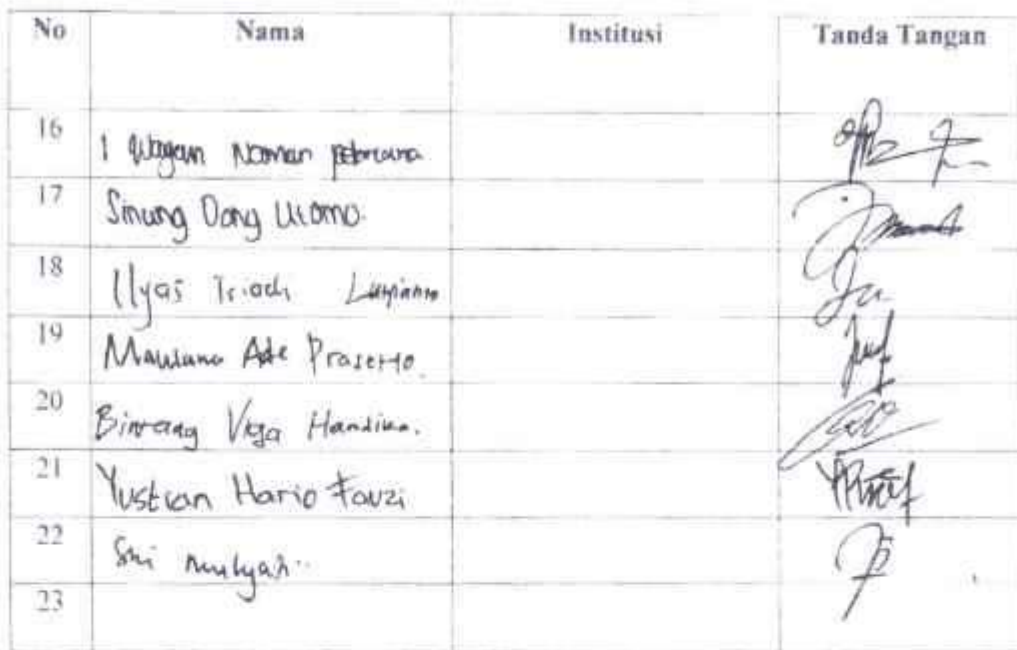 No Nama Institusi Tanda Tangan
16 I Wayan Noman
17 Sinung Dang Utomo.
18 Ilyas
19 Maulana Ade Prasetio.
20 Bintang Vega Handika.
21 Yustian Hario Fauzi
22 Sri mulyah..
23